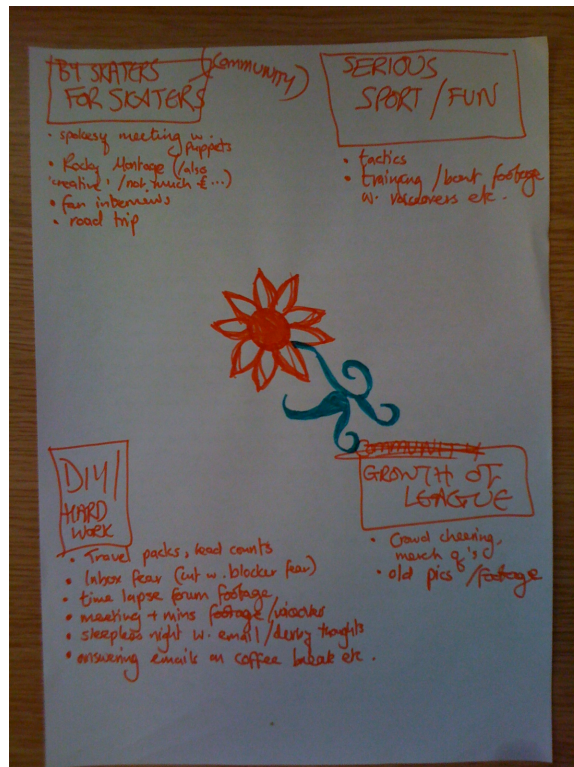 BY SKATERS
FOR SKATERS
(COMMUNITY)
• spokesy meeting w.
puppets
• Rocky Montage (/also
'creative' /not much € ...)
• fan interviews
• road trip
SERIOUS
SPORT / FUN
• tactics
• training / bout footage
w. voiceovers etc.
DIY /
HARD
WORK
• Travel packs, head counts
• Inbox fear (cut w. blocker fear)
• time lapse forum footage
• meeting + mins footage/voiceover
• sleepless night w. email/derby thoughts
• answering emails on coffee break etc.
COMMUNITY
GROWTH OF
LEAGUE
• Crowd cheering,
merch q's
• old pics /footage